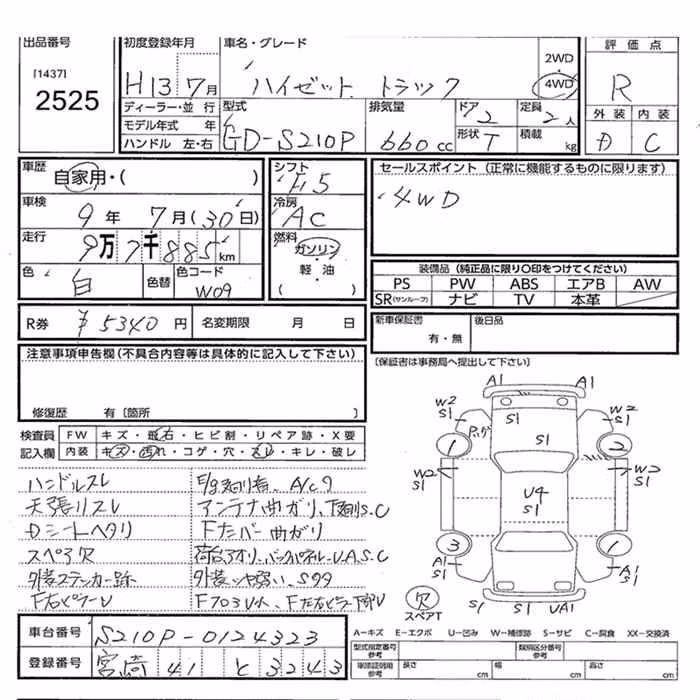 出品番号
[1437]
2525
初度登録年月
H13 7月
車名・グレード
ハイゼット トラック
2WD
4WD
評価点
R
外装 内装
D C
ディーラー・並行
モデル年式 年
ハンドル 左・右
型式
GD-S210P
排気量
660cc
ドア
2
形状 T
定員
2人
積載 kg
車歴
自家用・( )
車検
9年 7月(30日)
走行
9万7千885km
色
白
色替
色コード
W09
シフト
F5
冷房
AC
燃料
ガソリン
軽・油
( )
セールスポイント (正常に機能するものに限ります)
4WD
装備品 (純正品に限り○印をつけてください)
PS PW ABS エアB AW
SR(サンルーフ) ナビ TV 本革
R券 ¥5340円
名変期限 月 日
新車保証書
有・無
後日品
[保証書は事務局へ提出して下さい]
注意事項申告欄(不具合内容等は具体的に記入して下さい)
修復歴 有[箇所 ]
検査員
記入欄
FW キズ・飛石・ヒビ割・リペア跡・X要
内装 キズ・汚れ・コゲ・穴・スレ・キレ・破レ
ハンドルスレ
天張リスレ アンテナ曲ガリ、下廻S.C
Dシートヘタリ Fナンバー曲ガリ
スペア欠 荷台アオリ、バックパネルU.A.S.C
外装ステッカー跡
F右ピラーU
A1 A1
W2 S1 S1 W2 S1
S1
1 2
W2 S1 U4 S1 W2 S1
3 1
A1 S1 A1 S1
欠
スペアT
S1 S1 UA1
車台番号 S210P-0124323
登録番号 宮崎 41 と 3243
A-キズ E-エクボ U-凹み W-補修跡 S-サビ C-腐食 XX-交換済
型式指定番号 参考
類別区分番号
車庫証明用 参考
長さ cm 幅 cm 高さ cm